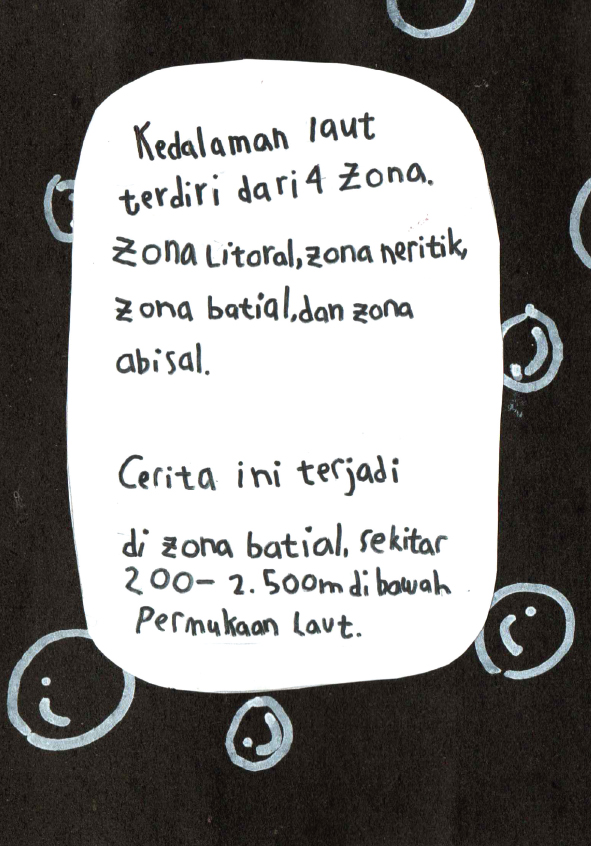 Kedalaman laut
terdiri dari 4 Zona.
Zona Litoral, zona neritik,
zona batial, dan zona
abisal.
Cerita ini terjadi
di zona batial, sekitar
200- 2.500m di bawah
Permukaan Laut.